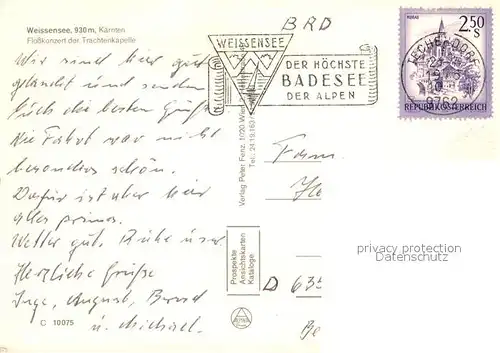 Weissensee, 930 m, Kärnten
Floßkonzert der Trachtenkapelle
Wir sind hier gut
gelandet und senden
Euch die besten Grüße
Die Fahrt war nicht
besonders schön.
Dafür ist aber hier
alles prima.
Wetter gut, Ruhe usw
Herzliche Grüße
Inge, August, Bernd
u. Michael.
C 10075
Verlag Peter Fenz, 1020 Wien
Tel. 24
Prospekte
Ansichtskarten
Kataloge
BRD
WEISSENSEE
DER HÖCHSTE
BADESEE
DER ALPEN
2.50
S
MURAU
REPUBLIK ÖSTERREICH
TECHENDORF
9762
Fam.
D 635
privacy protection
watermark